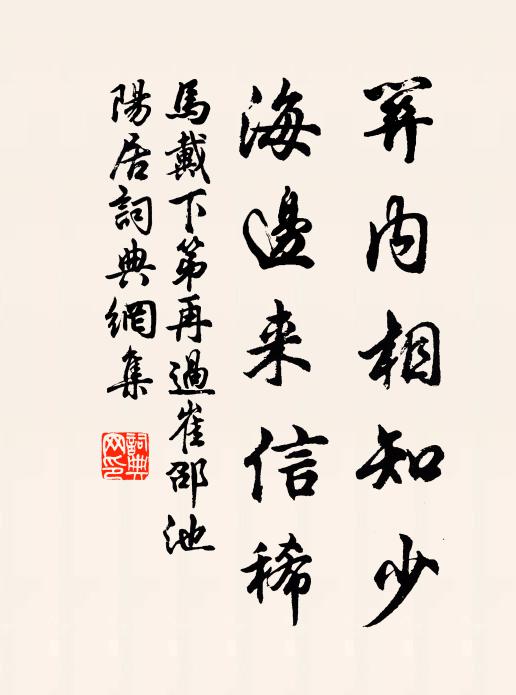 關内相知少
海邊来信稀
馬戴下第再過崔邵池
陽居詞典網集
詞典
网印